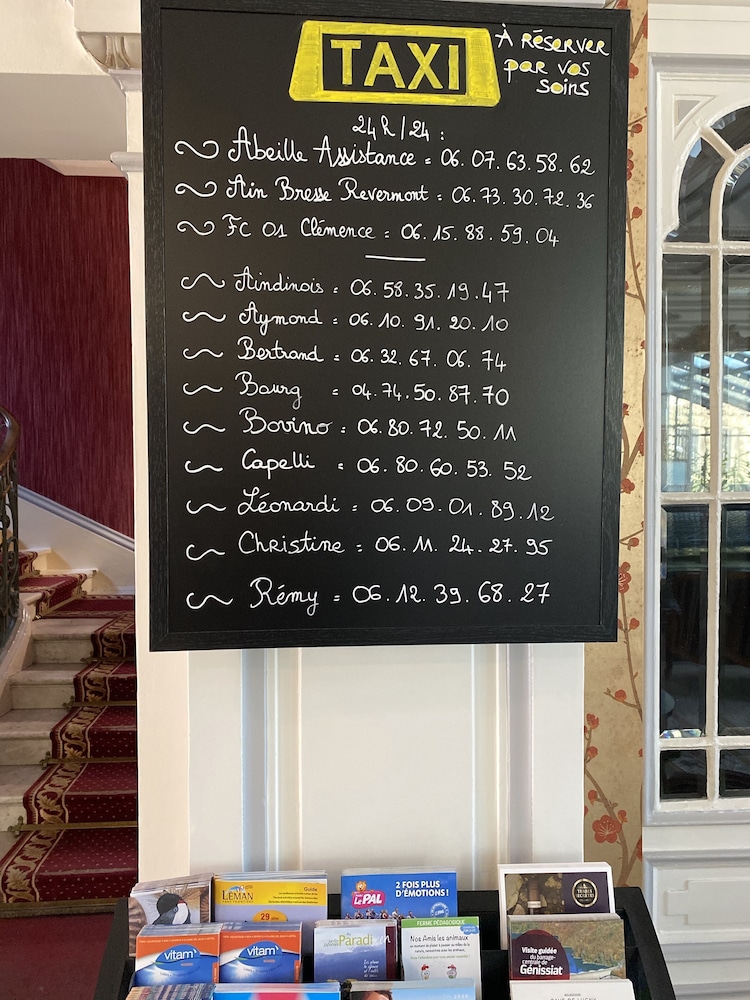 TAXI
À RÉSERVER
par vos
soins
24h/24 :
Abeille Assistance = 06.07.63.58.62
Ain Bresse Revermont = 06.73.30.72.36
FC 01 Clémence = 06.15.88.59.04
Aindinois = 06.58.35.19.47
Aymond = 06.10.91.20.10
Bertrand = 06.32.67.06.74
Bourg = 04.74.50.87.70
Bovino = 06.80.72.50.11
Capelli = 06.80.60.53.52
Léonardi = 06.09.01.89.12
Christine = 06.11.24.27.95
Rémy = 06.12.39.68.27
LÉMAN
Guide
29
Le PAL
2 FOIS PLUS
D'ÉMOTIONS !
vitam
vitam
Paradi
FERME PÉDAGOGIQUE
Nos Amis les animaux
Visite guidée
du barrage-
centrale de
Génissiat